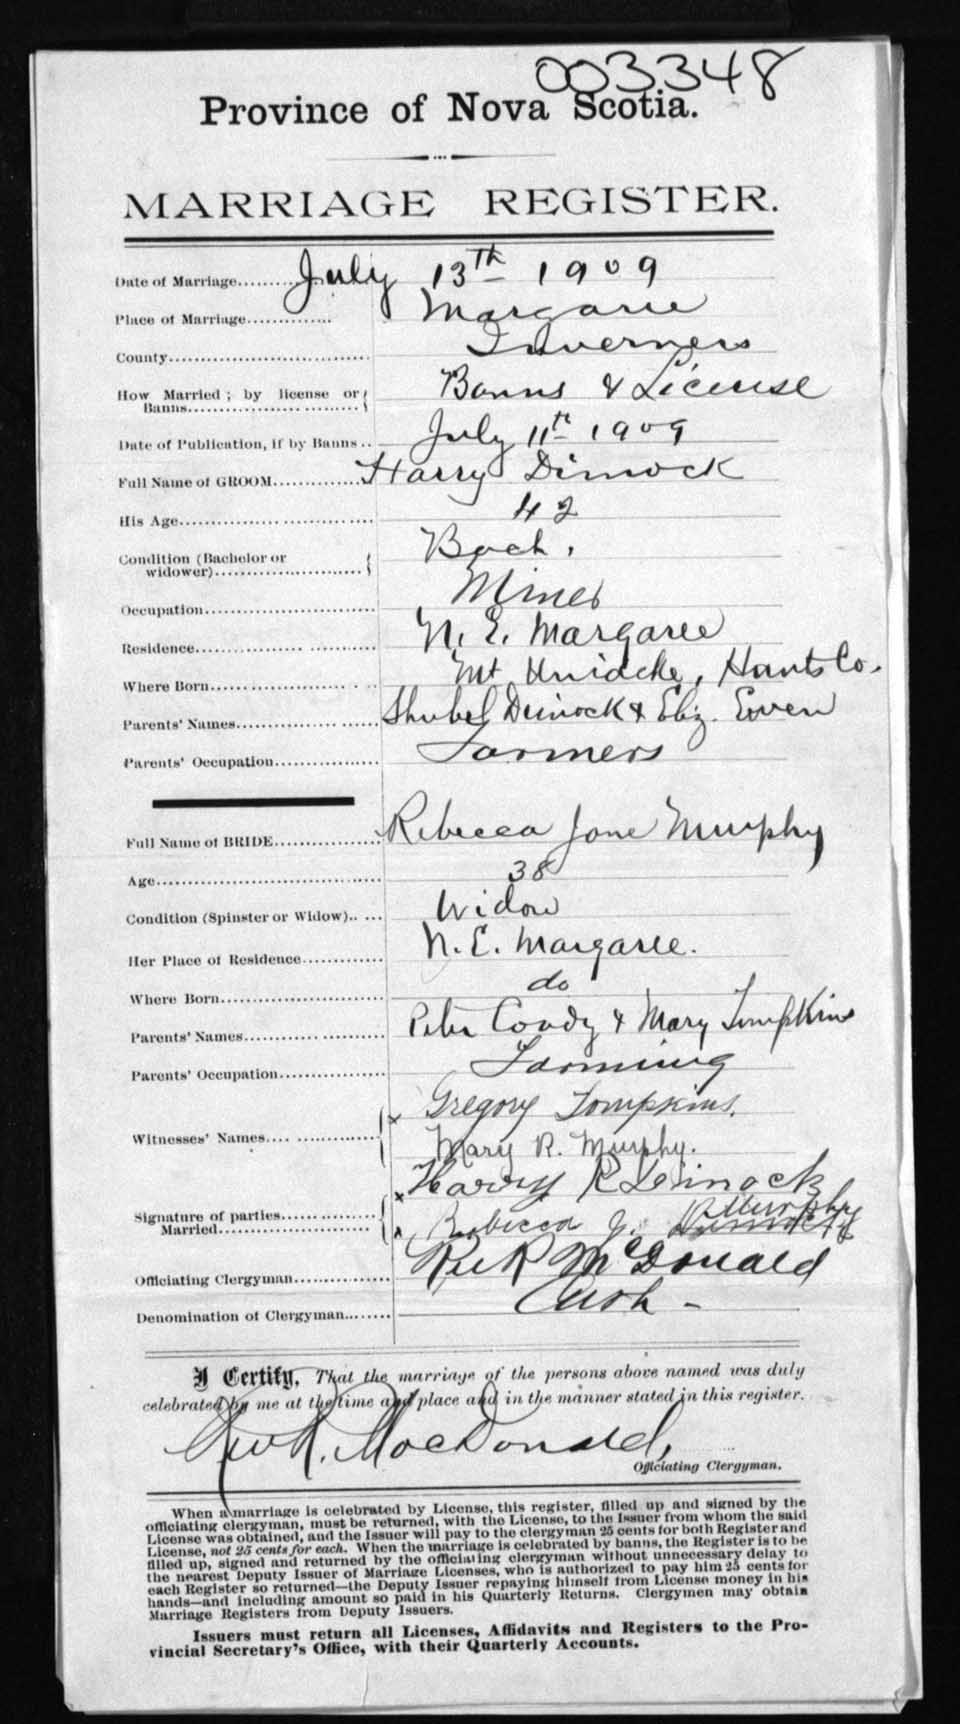 003348
Province of Nova Scotia.
MARRIAGE REGISTER.
Date of Marriage.......... July 13th 1909
Place of Marriage.............. Margaree
County................................ Inverness
How Married ; by license or Banns.............................. Banns & License
Date of Publication, if by Banns .. July 11th 1909
Full Name of GROOM............. Harry Dimock
His Age............................... 42
Condition (Bachelor or widower)........................ Bach.
Occupation........................... Miner
Residence............................. N. E. Margaree
Where Born........................ Mt Uniacke, Hants Co.
Parents' Names..................... Shubel Dimock & Eliz. Ewen
Parents' Occupation................ Farmers
Full Name of BRIDE................ Rebecca Jane Murphy
Age..................................... 38
Condition (Spinster or Widow)...... Widow
Her Place of Residence............. N. E. Margaree.
Where Born........................... do
Parents' Names...................... Peter Coady & Mary Tompkins
Parents' Occupation................. Farming
Witnesses' Names.................... x Gregory Tompkins.
Mary R. Murphy.
Signature of parties Married...................... x Harry R Dimock
x Rebecca J. Murphy
Officiating Clergyman................ Rev R McDonald
Denomination of Clergyman........ Cath -
I Certify, That the marriage of the persons above named was duly
celebrated by me at the time and place and in the manner stated in this register.
Rev R. MacDonald,
Officiating Clergyman.
When a marriage is celebrated by License, this register, filled up and signed by the
officiating clergyman, must be returned, with the License, to the Issuer from whom the said
License was obtained, and the Issuer will pay to the clergyman 25 cents for both Register and
License, not 25 cents for each. When the marriage is celebrated by banns, the Register is to be
filled up, signed and returned by the officiating clergyman without unnecessary delay to
the nearest Deputy Issuer of Marriage Licenses, who is authorized to pay him 25 cents for
each Register so returned—the Deputy Issuer repaying himself from License money in his
hands—and including amount so paid in his Quarterly Returns. Clergymen may obtain
Marriage Registers from Deputy Issuers.
Issuers must return all Licenses, Affidavits and Registers to the Pro-
vincial Secretary's Office, with their Quarterly Accounts.